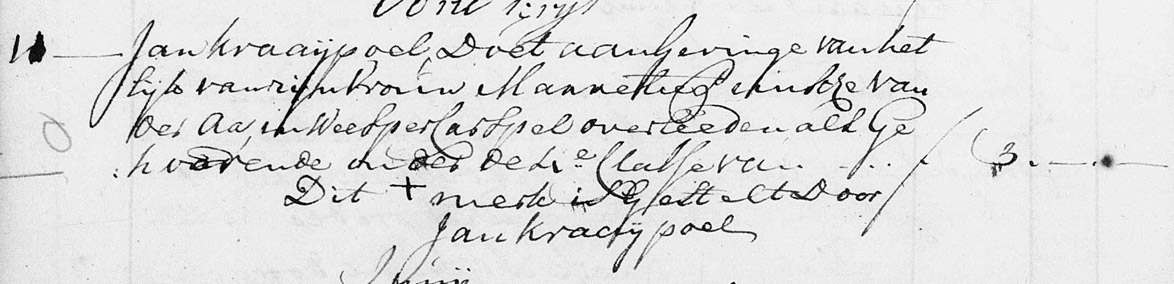 11 Jan kraaijpoel, Doet aan Gevinge van het
lijk van zijn vrouw Mannetie van
der Aa, in Weesper Carspel overleeden, als Ge
hoorende onder de Classe van 3.
Dit + merk is Gestelt Door
Jan kraaijpoel